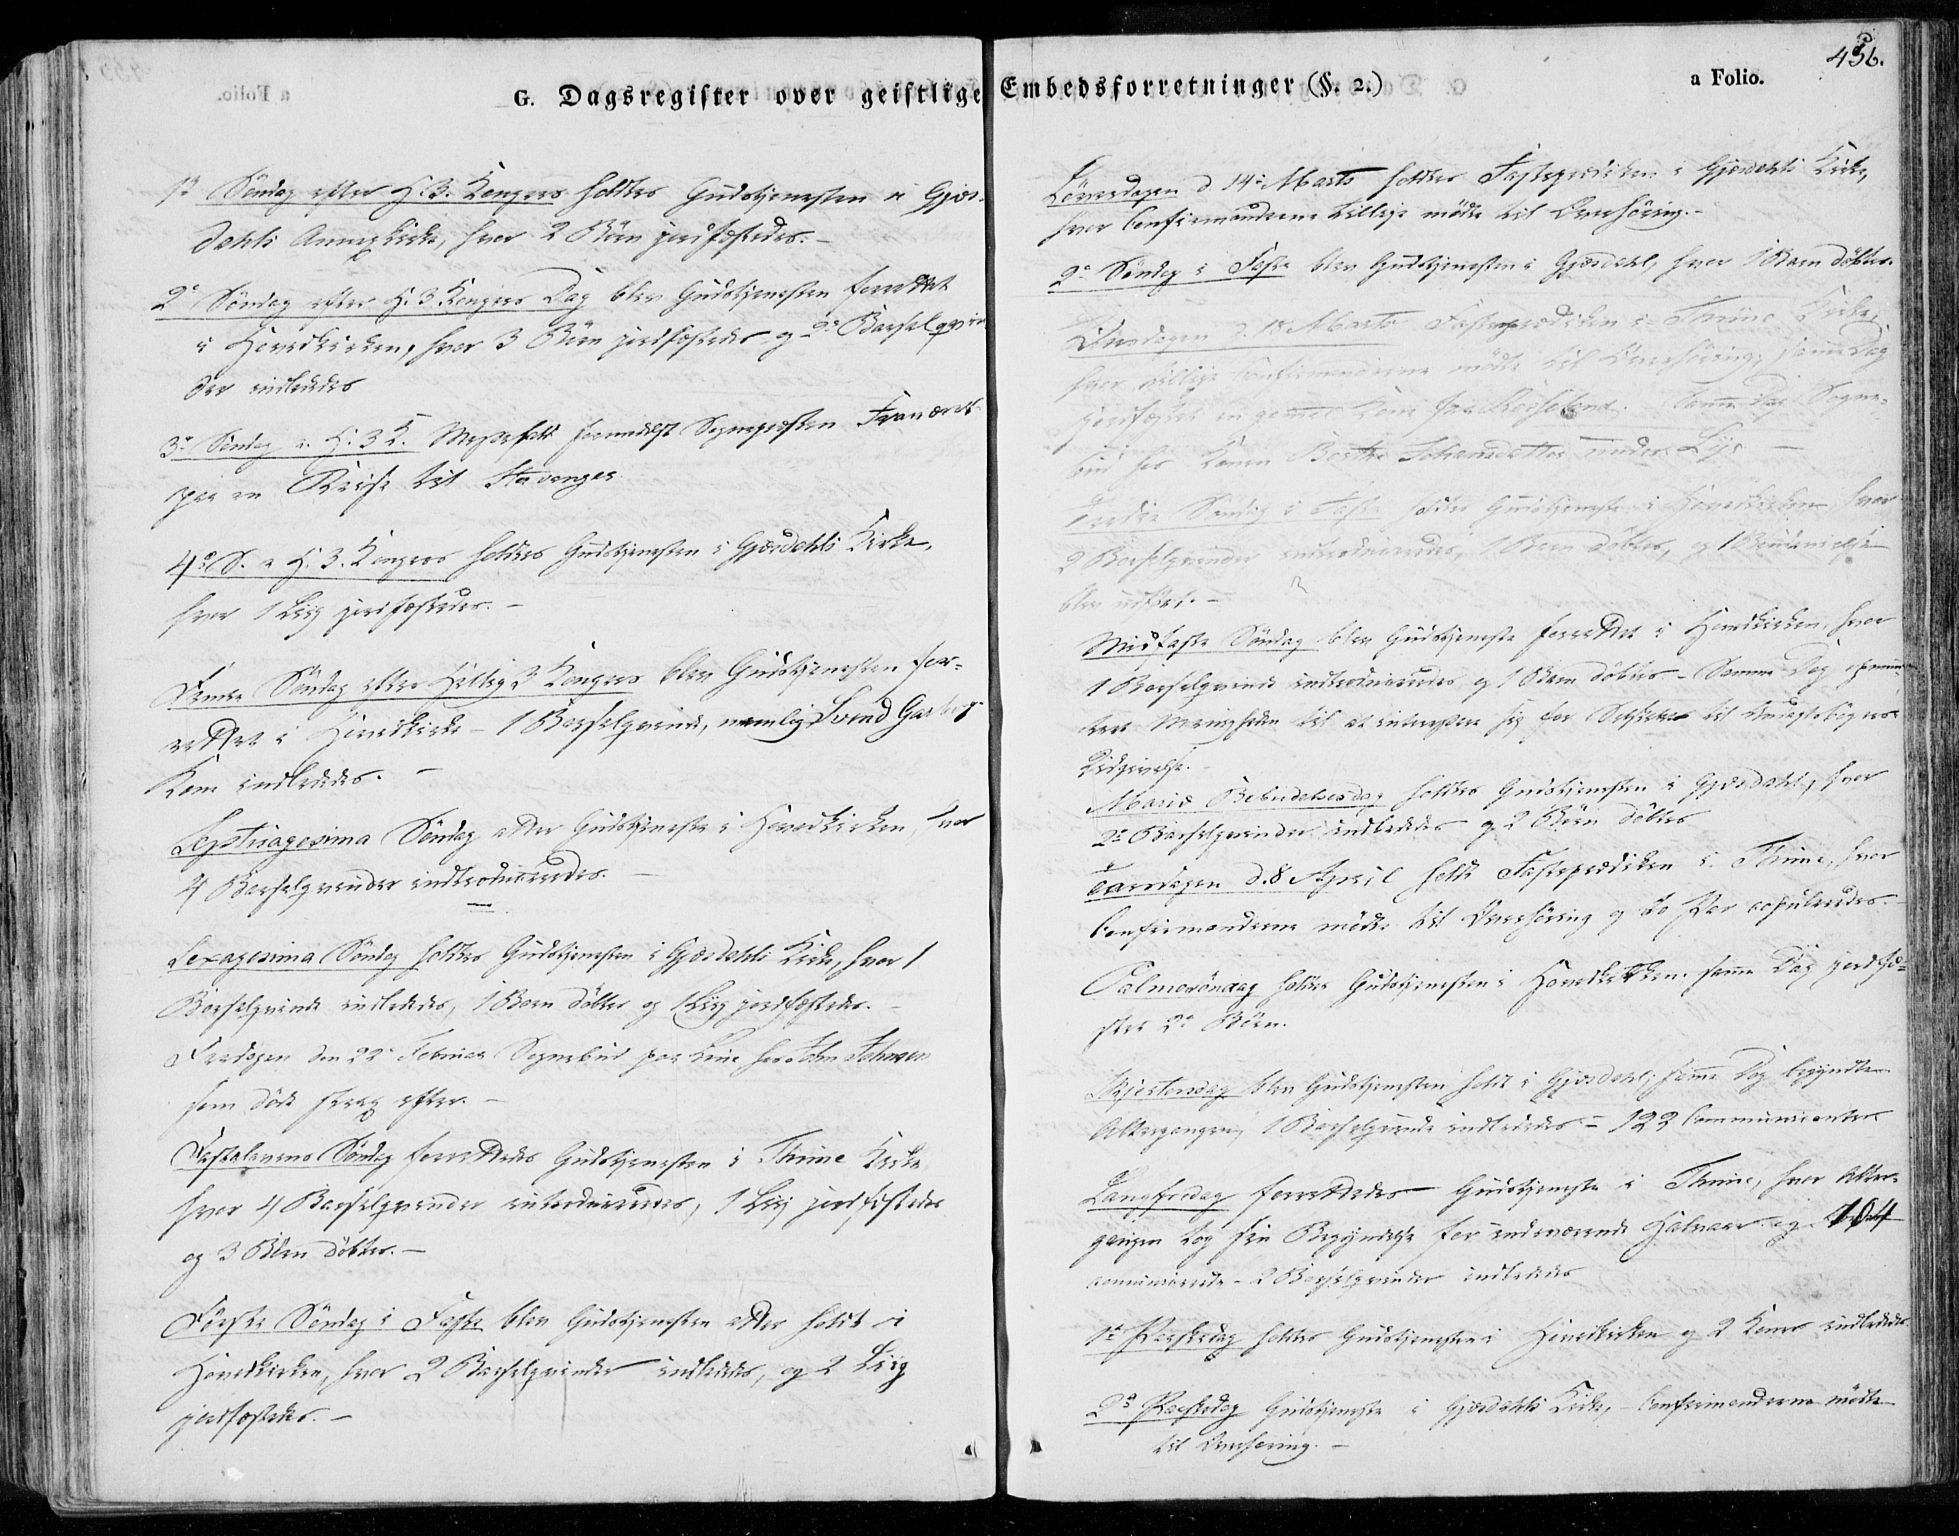 G. Dagsregister over geistlige Embedsforretninger (§. 2.)
a Folio.
456.
1ste Søndag efter H. 3. Kongers holdtes Gudstjenesten i Gjæs-
dahls Annexkirke, hvor 2 Børn jordfæstedes. -
2den Søndag efter H. 3 Kongers Dag blev Gudstjenesten forrettet
i Hovedkirken, hvor 3 Børn jordfæstedes og 2de Barselqvin
der indlededes
3die Søndag e. H. 3 K. Messefald formedelst Sognepræsten
paa en Reise til Stavanger
4de S. e H. 3. Kongers holdtes Gudstjenesten i Gjæsdahls Kirke,
hvor 1 Liig jordfæstedes. -
Femte Søndag efter Hellig 3 Kongers blev Gudstjenesten for-
rettet i Hovedkirke - 1 Barselqvinde, nemlig Svend
Kone indlededes. -
Septuagesima Søndag atter Gudstjeneste i Hovedkirken, hvor
4 Barselqvinder introduceredes. -
Sexagesima Søndag holdtes Gudstjenesten i Gjæsdahls Kirke, hvor 1
Barselqvinde indlededes, 1 Barn døbtes og 1 Liig jordfæstedes. -
Fredagen den 22de Februar Sognebud paa Line hos John Johnsen
som døde strax efter. -
Fastelavens Søndag forrettedes Gudstjenesten i Thime Kirke
hvor 4 Barselqvinder introduceredes, 1 Liig jordfæstedes
og 3 Børn døbtes. -
Første Søndag i Faste blev Gudstjenesten atter holdt i
Hovedkirken, hvor 2 Barselqvinder indlededes, og 2 Liig
jordfæstedes. -
Løverdagen d. 14de Marts holdtes Fasteprædiken i Gjæsdahls Kirke,
hvor Confirmanderne tillige mødte til Overhøring. -
2den Søndag i Faste blev Gudstjenesten i Gjæsdahl, hvor 1 Barn døbtes.
Onsdagen d. 18 Marts Fasteprædiken i Thime Kirke,
hvor tillige Confirmanderne mødte til Overhøring; samme Dag
jordfæstes en gammel Kone fra . Samme Dag Sogne-
bud hos Konen Berthe Johansdatter under Lye -
Tredie Søndag i Faste holdtes Gudstjeneste i Hovedkirken hvor
2 Barselqvinder introduceredes, 1 Barn døbtes, og 1
blev udført. -
Midfaste Søndag blev Gudstjeneste forrettet i Hovedkirken, hvor
1 Barselqvinde introduceredes og 1 Barn døbtes - Samme Dag
Menigheden til at interessere sig for Selskabet til Andagtsbøgers
Udgivelse. -
Mariæ Bebudelsesdag holdtes Gudstjenesten i Gjæsdahl, hvor
2de Barselqvinder indlededes og 2 Børn døbtes
d. 8 April holdt Fasteprædiken i Thime, hvor
Confirmanderne mødte til Overhøring og to Par copuleredes.
Palmesöndag holdtes Gudstjenesten i Hovedkirken. samme Dag jordfæ-
stes 2de Børn.
Skjertorsdag blev Gudstjenesten holdt i Gjæsdahl; samme Dag begyndte
Altergangen, 1 Barselqvinde indlededes - 122 Communicanter
Langfredag forrettedes Gudstjeneste i Thime, hvor Alter-
gangen tog sin Begyndelse for indeværende Halvaar og 104
communicerede - 2 Barselqvinder indlededes
1ste Paaskedag holdtes Gudstjenesten i Hovedkirken og 2 Koner indlededes.
2den Paaskedag Gudstjeneste i Gjæsdahls Kirke, - Confirmanderne mødte
til Overhøring. -